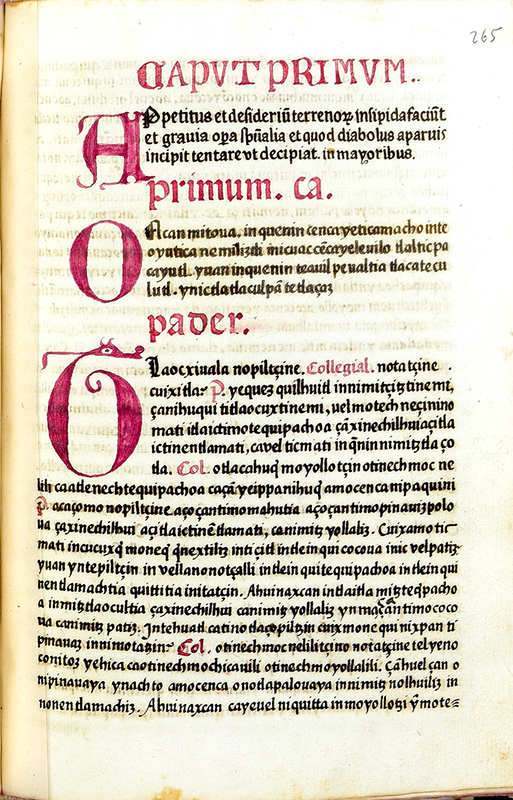 265
CAPUT PRIMUM..
Appetitus et desideriũ terrenoꝝ insipida faciũt
et gravia oꝑa spũalia et quod diabolus a parvis
incipit tentare vt decipiat. in mayoribus.
primum. ca.
Oncan mitoua, in quenin cenca yeticamacho inte
oyutica nemiliztli
tlalticpa
cayutl. yuan inquenin
tlacatecu
lutl. ynic tlatlaculpã tetlaçaȝ
pader.
Tlaocxiuala nopiltçine. Collegial. notatçine .
cuix itla? P. yequeȝ quilhuitl innimitçitȝtinemi,
çanihuqui titlaocuxtinemi, uel motech neçi
mati itla ictimotequipachoa çaxinechilhui açitla
ictinentlamati, cavel ticmati in q̃nin nimitȝtlaço
tla. Col. otlacahuq̃ moyollotçin otinechmoc ne
lili ca atle nechtequipachoa caçã yeippanihuq̃ amo cencampa quini
P. acaçomo nopiltçine. aço çantimomahutia aço çantimopinauiȝpolo
ua çaxinechilhui açitla ictinẽtlamati, canimitȝ yollaliȝ. Cuix amo tic
mati
yuan yntepiltçin
nentlamachtia quittitia initatçin. Ahuinaxcan intlaitla mitȝteq̃pacho
a in mitȝtlaocultia çaxinechilhui canimitȝ yollaliȝ yn maçãntimococo
ua canimitȝ patiȝ. Intehuatl catinotlaçopiltȝin cuix moneq̃ui nixpan ti
pinauaȝ innimotatȝin? Col. otinechmocnelilitçino notatçine tel yeno
conitoȝ yehica caotinechmochicauili otinechmoyollalili. Cãhuel çan o
nipinauaya, ynachto amo cenca onodapalouaya innimitȝ nolhuiliȝ in
nonentlamachiȝ. Ahuinaxcan cayeuel niquitta inmoyollotzi ỹmote=